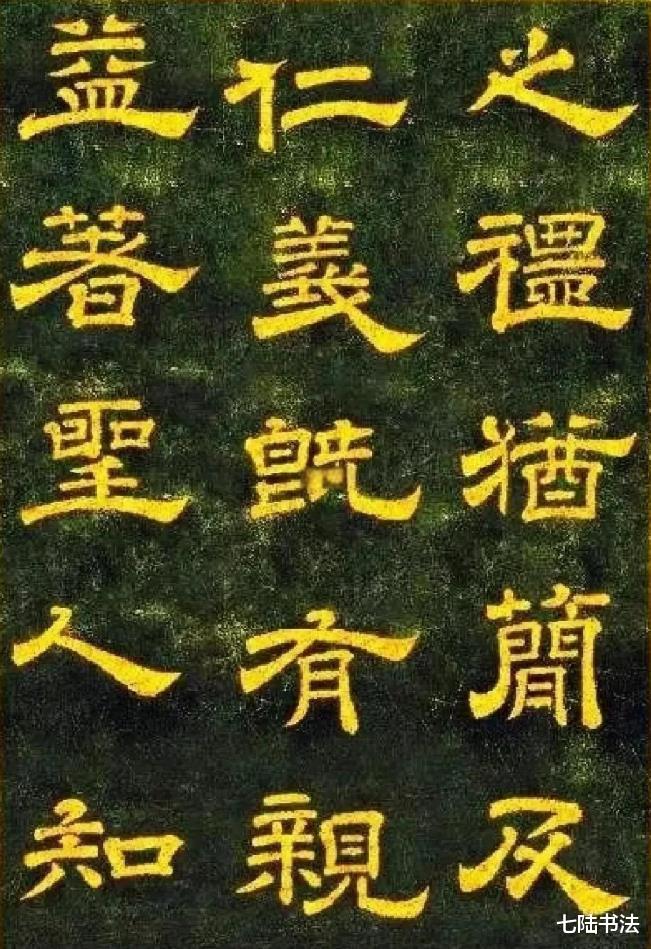 之禮猶簡及
仁義既有親
益著聖人知
七陆书法